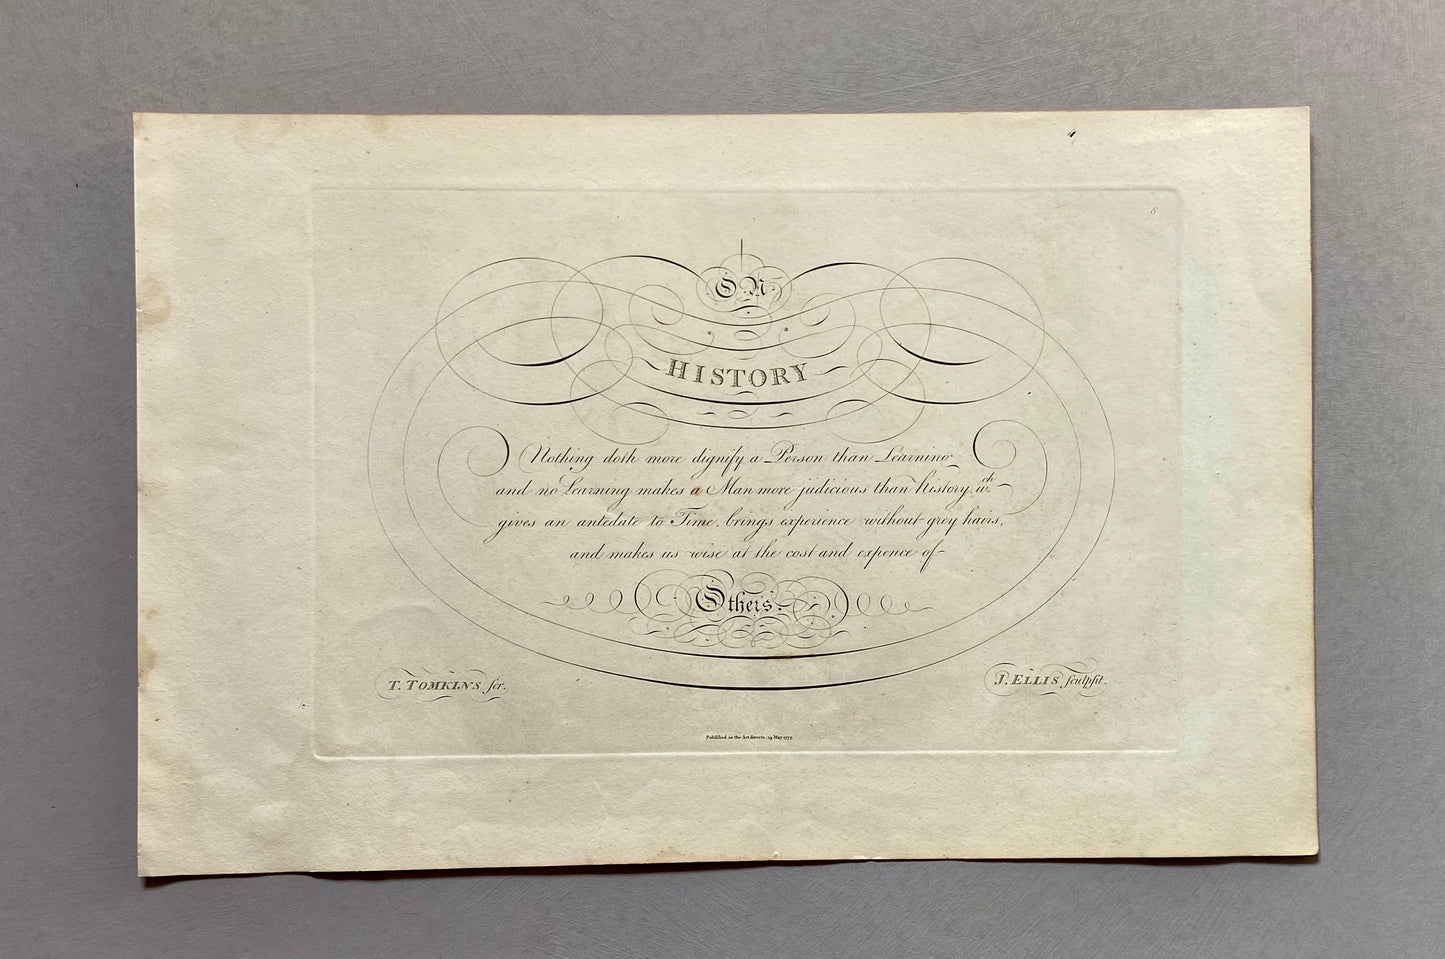 8
ON
HISTORY
Nothing doth more dignify a Person than Learning
and no Learning makes a Man more judicious than history, wch
gives an antedate to Time, brings experience without grey hairs,
and makes us wise at the cost and expence of
Others.
T. TOMKINS scr.
J. ELLIS sculpsit.
Published as the Act directs, 19 May 1777.